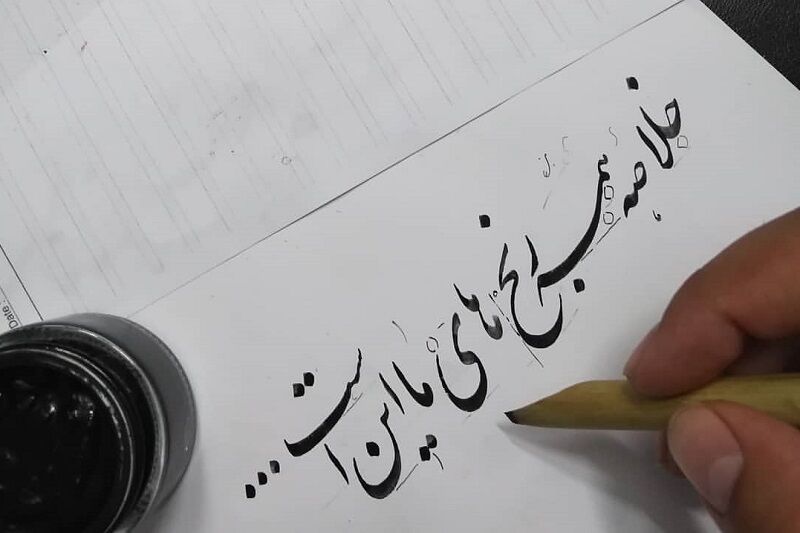 Date :
خلاصه همه رنج های ما این است ...